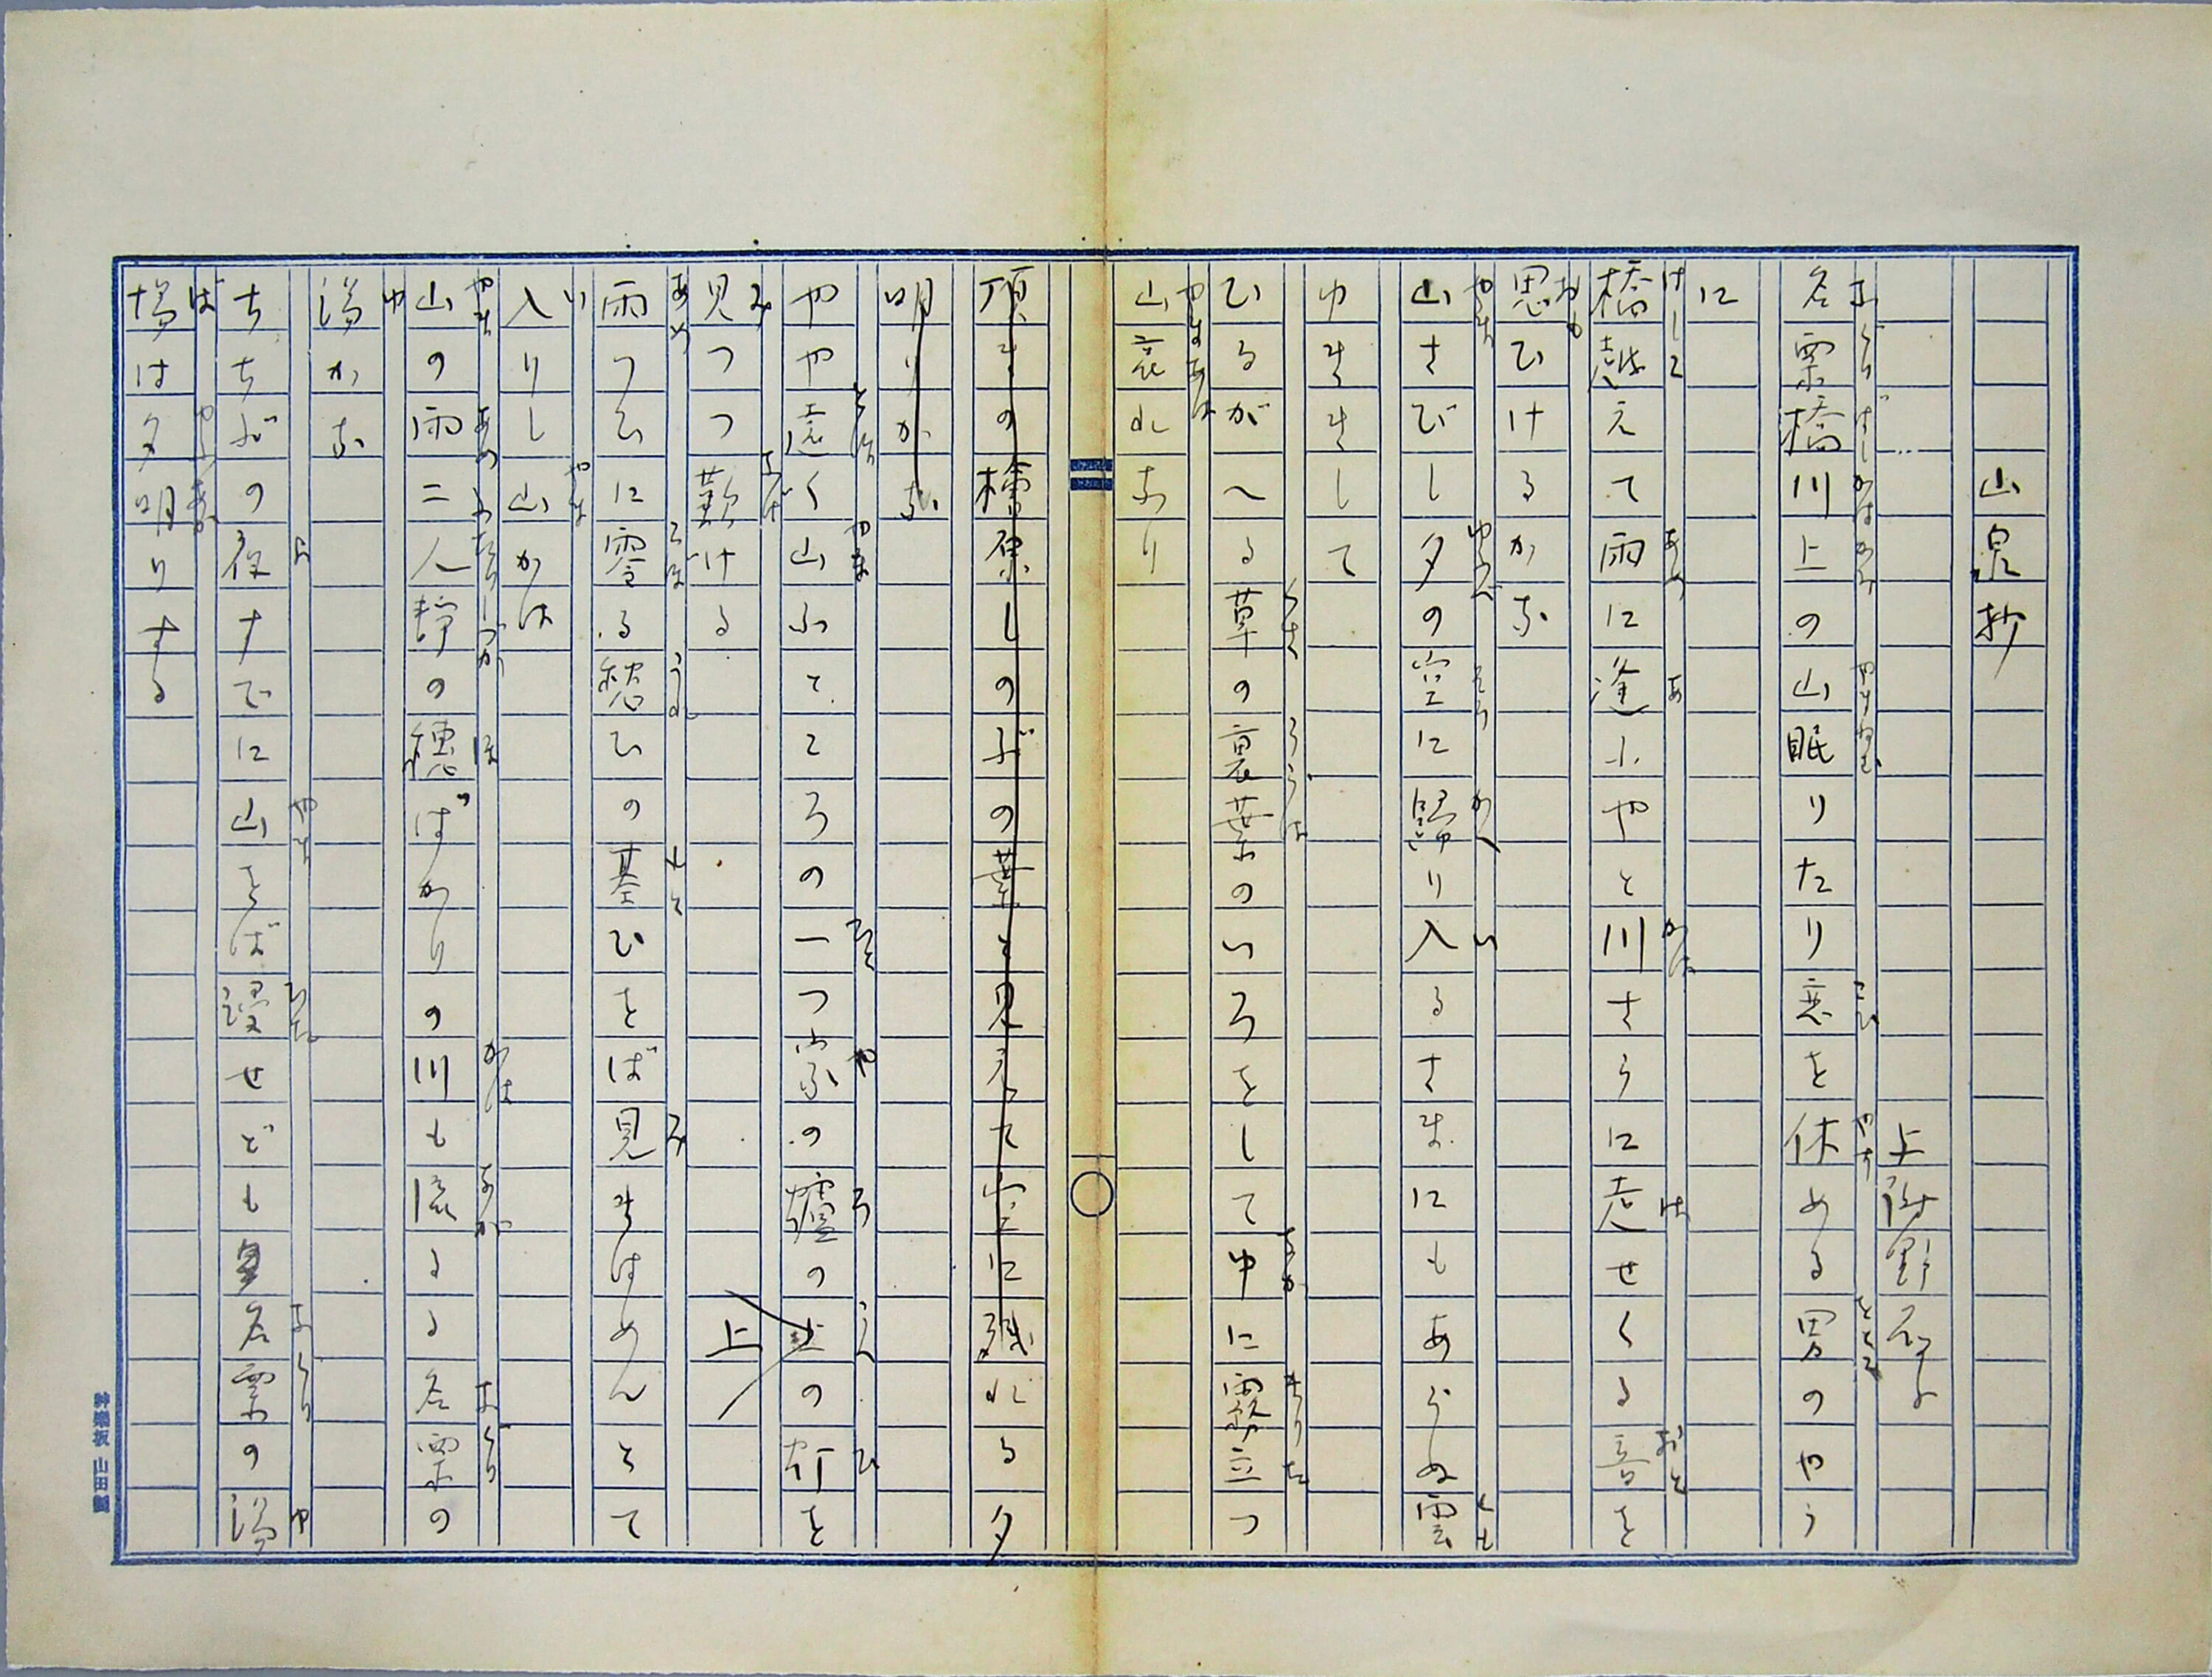 山泉抄
上詩野 子
名栗橋川上の山眠りたり恋を休める男のやう
に
橋越えて雨に逢ふやと川さうに走せくる音を
思ひけるかな
山さびし夕の空に歸り入るさまにもあらぬ雲
ゆきまして
ひるがへる草の裏葉のいろをして中に霧立つ
山哀れなり
頂きの檜原しのぶの葉と見えて空に殘れる夕
明りかな
やや遠く山ふところの一つ家の爐の上の灯を
見つつ歎ける
上
雨つひに零る愁ひの基ひをば見きはめんとて
入りし山かは
山の雨二人静の穂ばかりの川も流るる名栗の
湯かな
ちちぶの夜すでに山をば浸せども名栗の湯
場は夕明りする
神樂坂 山田製